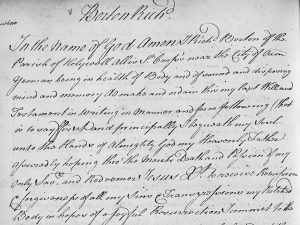 Borlon Rich.d
In the Name of God Amen I Rich.d Borlon of the
Parish of Holywell alias S.t Crosses near the City of Oxon
Yeoman being in health of Body and of sound and disposing
mind and memory do make and ordain this my last Will and
Testament in Writing in Manner and form following (that
is to say) first and principally I bequeath my Soul
unto the Hands of Almighty God my Heavenly Father
assuredly hoping thro' the Merits Death and Passion of my
only Sav.r and Redeemer Jesus X.t to receive Pardon
& forgiveness of all my Sins & Transgressions my
Body in hopes of a joyful Resurrection I commit to the